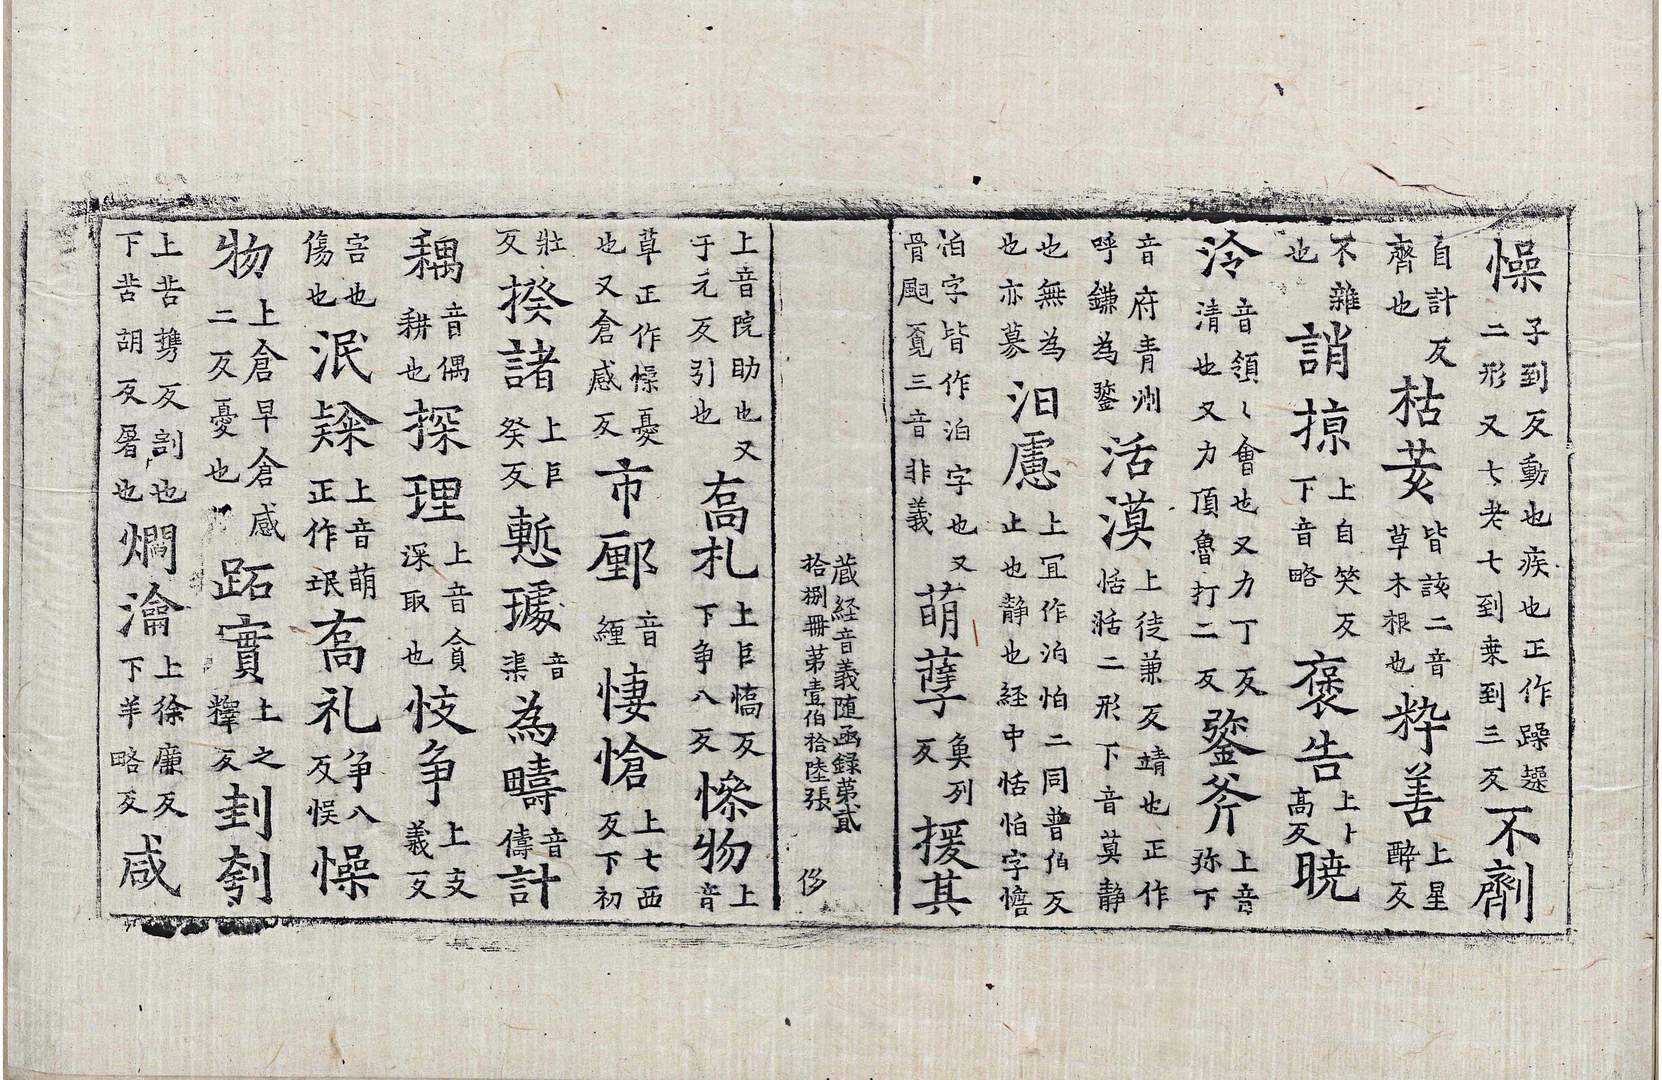 懆子到反動也疾也正作躁趮二形又七老七到桒到三反不劑
自計反齊也枯荄皆該二音草木根也粋善上星醉反
不雜也誚掠上自笑反下音略褒告上卜高反暁
泠音領〻會也又力丁反清也又力頂魯打二反鐅斧上音弥下
音府青州呼鎌為鐅活漠上徒兼反靖也正作恬湉二形下音莫静
也無為也亦募汩慮上冝作泊怕二同普伯反止也静也経中恬怕字憺
怕字皆作泊字也又骨覔三音非義萌孽魚列反援其
蔵経音義随函録第貳
拾捌冊第壹伯拾陸張 侈
上音院助也又于元反引也髙札上巨憍反下争八反慘物上音
草正作懆憂也又倉感反市鄽音緾悽愴上七西反下初
壯反揆諸上巨癸反慙璩音渠為疇音儔計
耦音偶耕也探理上音貪深取也忮争上支義反
害也傷也泯上音萌正作氓髙礼争八反悮懆
物上倉早倉感二反憂也跖實上之釋反刲刳
上苦携反割也下苦胡反屠也爓瀹上徐廉反下羊略反咸